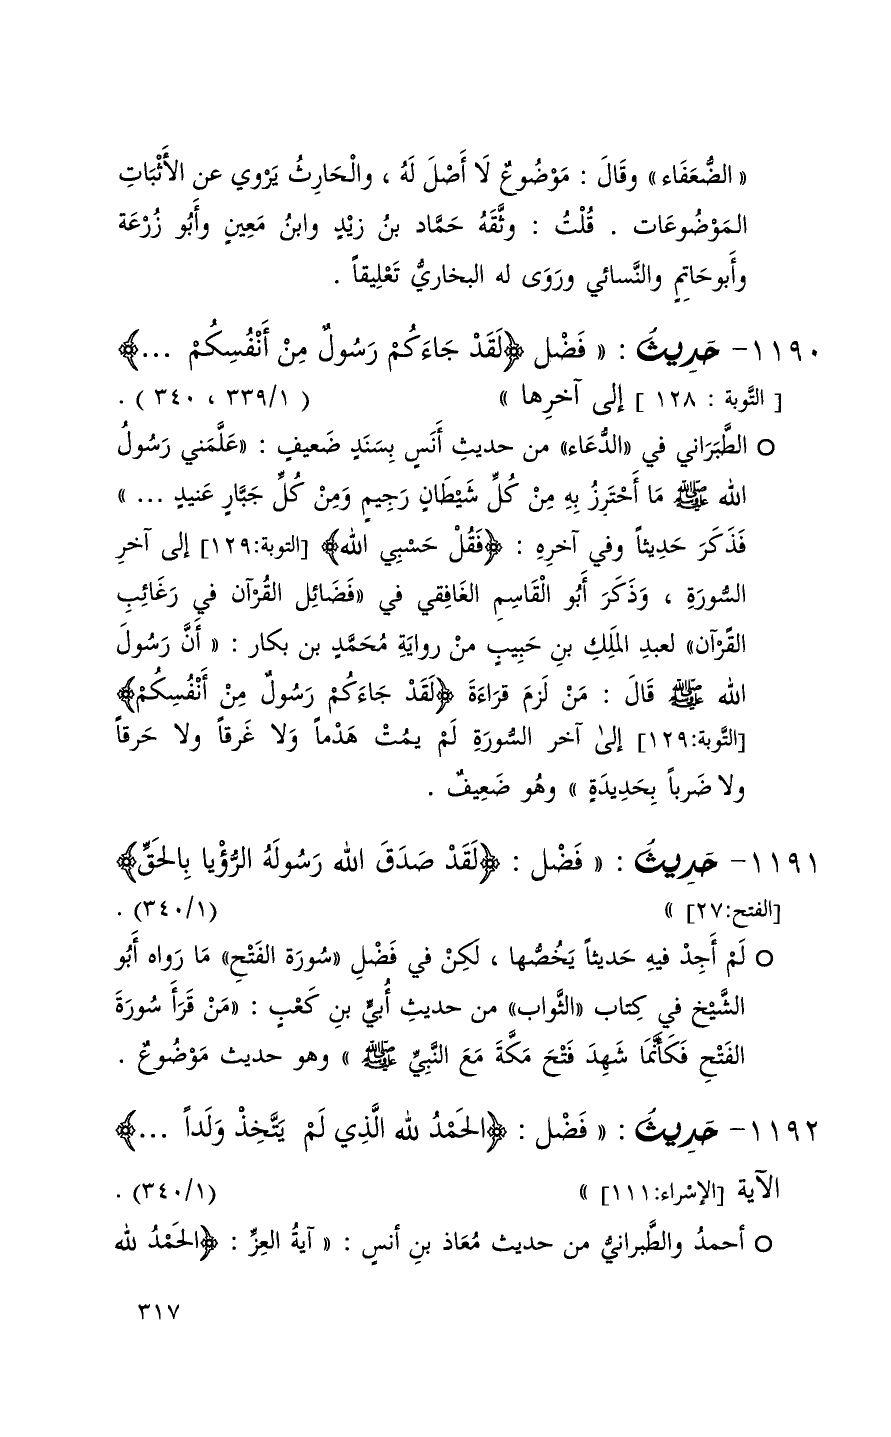 « الضُّعَفَاء » وقَالَ : مَوْضُوعٌ لَا أَصْلَ لَهُ ، والْحَارِثُ يَرْوي عن الأَثْبَاتِ
المَوْضُوعَات . قُلْتُ : وثَّقَهُ حَمَّاد بنُ زيْدٍ وابنُ مَعِينٍ وأَبُو زُرْعَة
وأَبوحَاتِمٍ والنَّسائي ورَوَى له البخاريُّ تَعْلِيقاً .
١١٩٠- حَدِيثُ : « فَضْل ﴿لَقَدْ جَاءَكُمْ رَسُولٌ مِنْ أَنْفُسِكُمْ ...﴾
[ التَّوبة : ١٢٨ ] إلى آخرِها » ( ٣٣٩/١ ، ٣٤٠ ) .
○ الطَّبَرَاني في «الدُّعَاء» من حديثِ أَنَسٍ بِسَنَدٍ ضَعيفٍ : «عَلَّمَني رَسُولُ
الله ﷺ مَا أَحْتَرِزُ بِهِ مِنْ كُلِّ شَيْطَانٍ رَجِيمٍ وَمِنْ كُلِّ جَبَّارٍ عَنيدٍ ... »
فَذَكَرَ حَدِيثاً وفي آخرِهِ : ﴿فَقُلْ حَسْبِي الله﴾ [التوبة:١٢٩] إلى آخرِ
السُّورَةِ ، وَذَكَرَ أَبُو الْقَاسِمِ الغَافِقي في «فَضَائِل القُرْآن في رَغَائِبِ
القُرْآن» لعبدِ الملَِكِ بنِ حَبِيبٍ منْ روايَةِ مُحَمَّدٍ بن بكار : « أَنَّ رَسُولَ
الله ﷺ قَالَ : مَنْ لَزمَ قرَاءَةَ ﴿لَقَدْ جَاءَكُمْ رَسُولٌ مِنْ أَنْفُسِكُمْ﴾
[التَّوبة:١٢٩] إلىٰ آخر السُّورَةِ لَمْ يمُتْ هَدْماً وَلا غَرقاً ولا حَرقاً
ولا ضَرباً بِحَدِيدَةٍ » وهُو ضَعِيفٌ .
١١٩١- حَدِيثُ : « فَضْل : ﴿لَقَدْ صَدَقَ الله رَسُولَهُ الرُّؤْيا بِالحَقِّ﴾
[الفتح:٢٧] » (٣٤٠/١) .
○ لَمْ أَجِدْ فيهِ حَديثاً يَخُصُّها ، لَكِنْ في فَضْلِ «سُورَة الفَتْحِ» مَا رَواه أَبُو
الشَّيْخ في كِتاب «الثَّواب» من حديثِ أُبيٍّ بنِ كَعْبٍ : «مَنْ قَرَأَ سُورَةَ
الفَتْحِ فَكَأَنَّمَا شَهِدَ فَتْحَ مَكَّةَ مَعَ النَّبِيِّ ﷺ » وهو حديث مَوْضُوعٌ .
١١٩٢- حَدِيثُ : « فَضْل : ﴿الحَمْدُ لله الَّذِي لَمْ يَتَّخِذْ وَلَداً ...﴾
الآية [الإسْراء:١١١] » (٣٤٠/١) .
○ أحمدُ والطَّبرانيُّ من حديث مُعَاذ بنِ أنسٍ : « آيةُ العِزِّ : ﴿الحَمْدُ لله
٣١٧